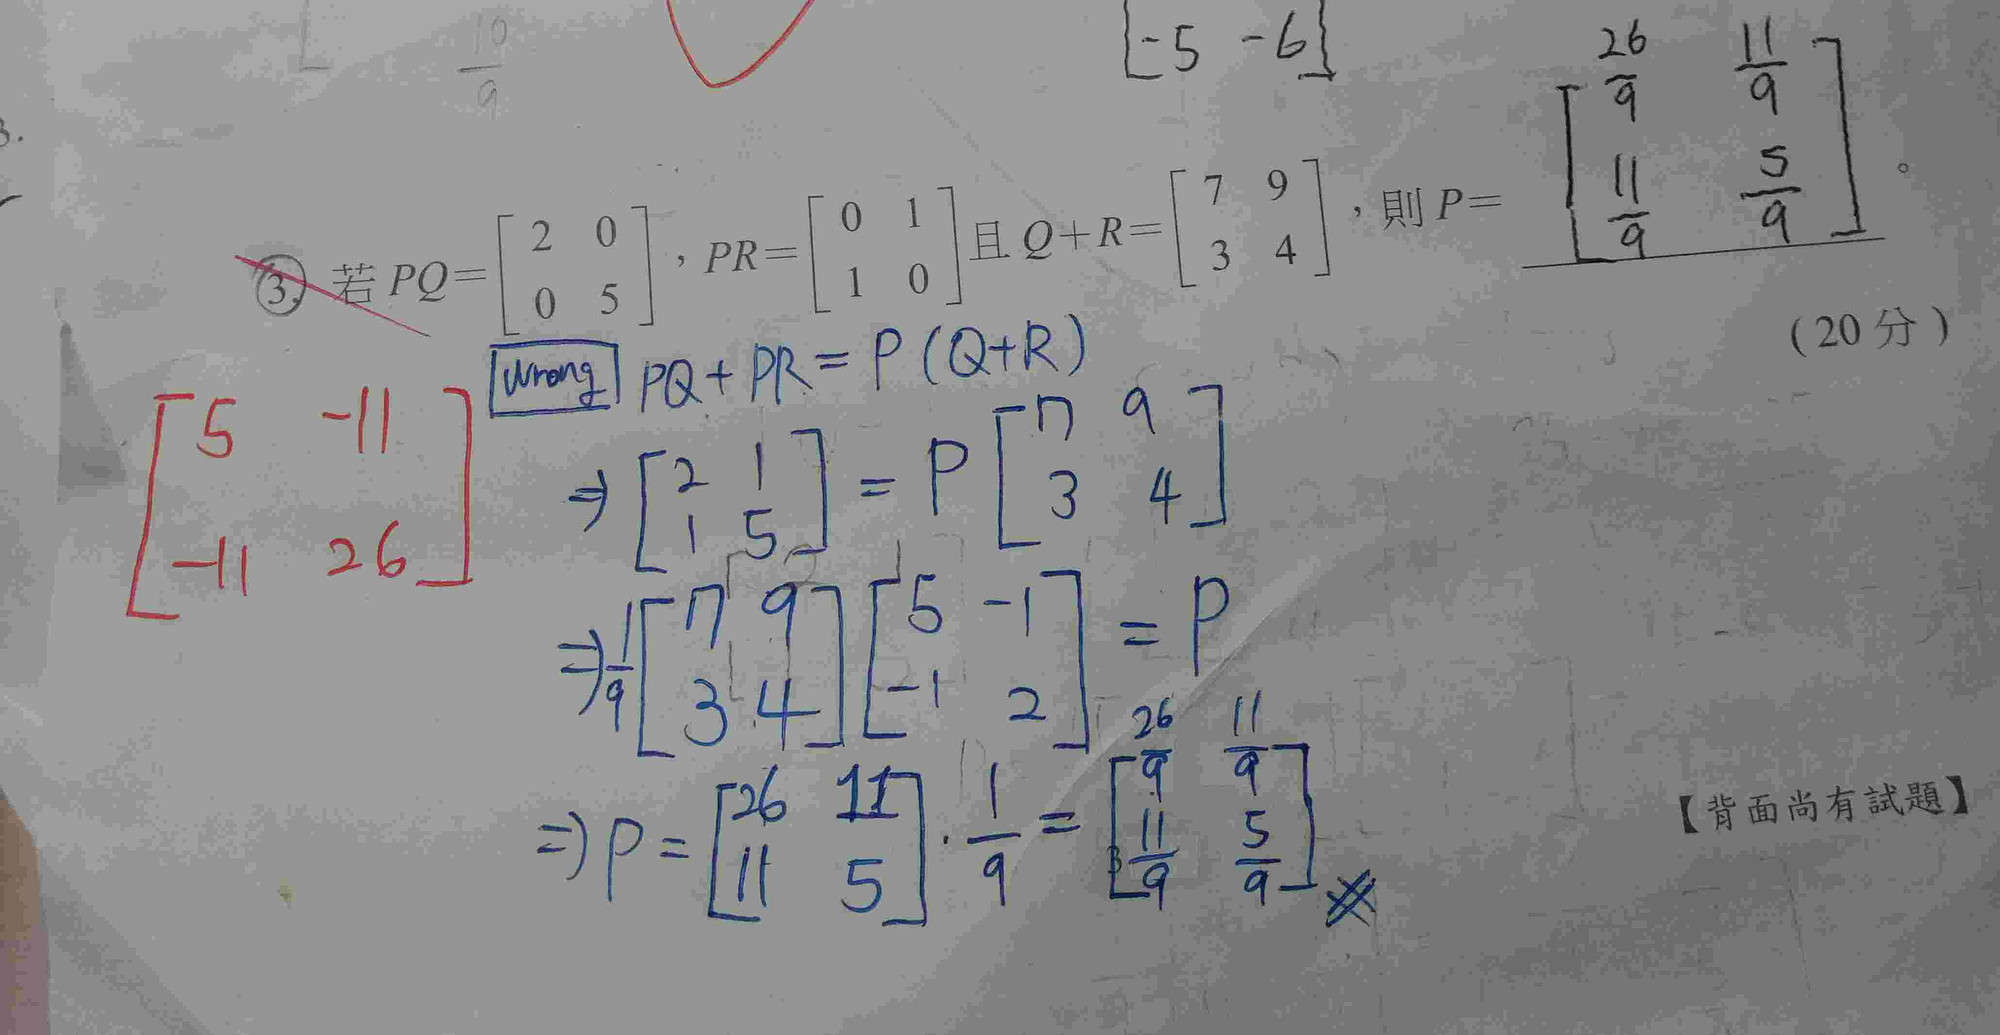 10/9
[-5 -6]
3.
3. 若 PQ = [2 0; 0 5], PR = [0 1; 1 0] 且 Q+R = [7 9; 3 4], 則 P = [26/9 11/9; 11/9 5/9]。
(20分)
[5 -11; -11 26]
Wrong PQ + PR = P (Q+R)
⇒ [2 1; 1 5] = P [7 9; 3 4]
⇒ 1/9 [7 9; 3 4] [5 -1; -1 2] = P
⇒ P = [26 11; 11 5] · 1/9 = [26/9 11/9; 11/9 5/9]
【背面尚有試題】